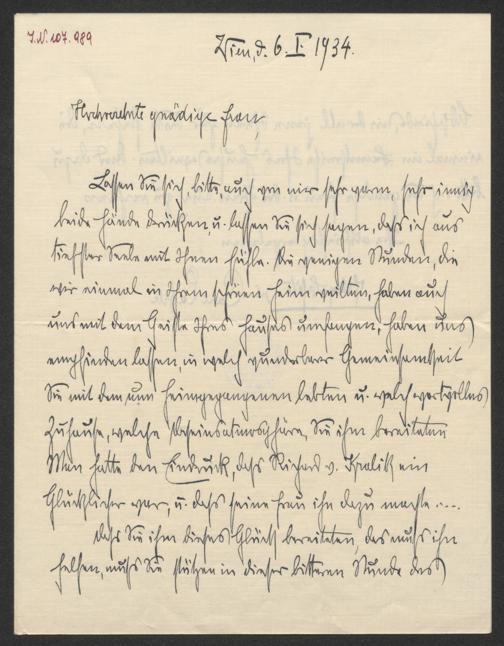 J.N. 107.989
Wien, d. 6. I. 1934.
Hochverehrte gnädige Frau,
Lassen Sie sich, bitte, auch von mir sehr warm, sehr innig
beide Hände drücken u. lassen Sie sich sagen, dass ich aus
tiefster Seele mit Ihnen fühle. Die wenigen Stunden, die
wir einmal in Ihrem schönen Heim weilten, haben auch
uns mit dem Geiste Ihres Hauses umfangen, haben uns
empfinden lassen, in welch wunderbarer Gemeinsamkeit
Sie mit dem nun Heimgegangenen lebten u. welch wertvolles
Zuhause, welche Atmosphäre, Sie ihm bereiteten
Man hatte den Eindruck, dass Richard v. Kralik ein
Glücklicher war, u. dass seine Frau ihn dazu machte ....
Dass Sie ihm dieses Glück bereiteten, das muss Ihnen
helfen, muss Sie stützen in dieser bitteren Stunde des